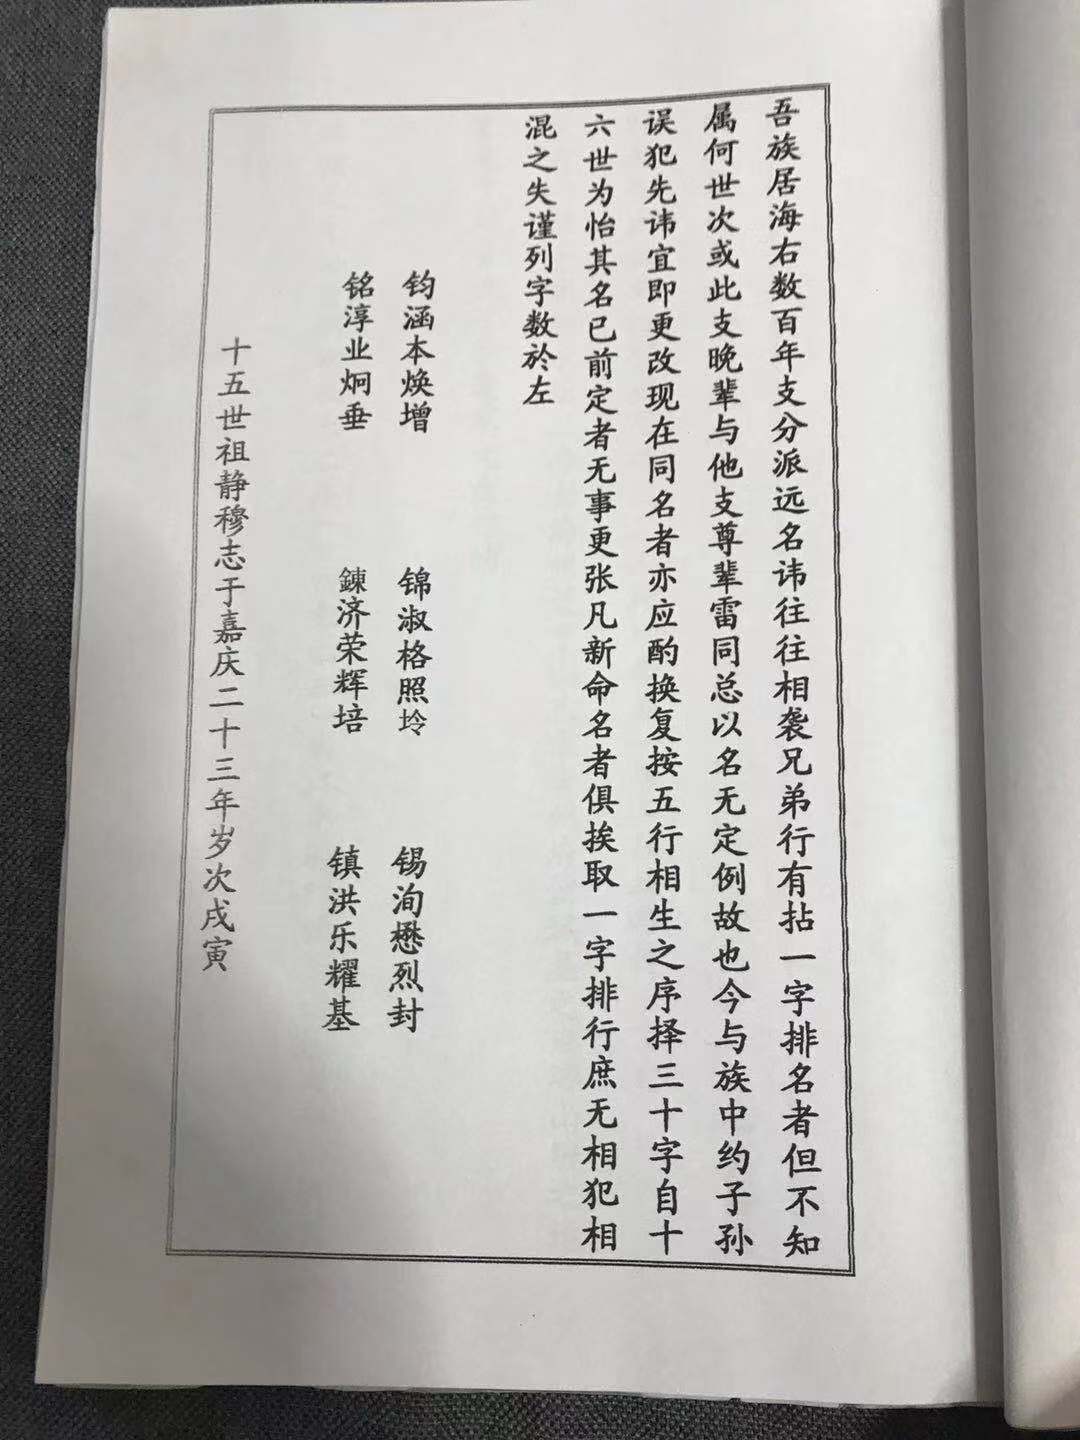 吾族居海右数百年支分派远名讳往往相袭兄弟行有拈一字排名者但不知
属何世次或此支晚辈与他支尊辈雷同总以名无定例故也今与族中约子孙
误犯先讳宜即更改现在同名者亦应酌换复按五行相生之序择三十字自十
六世为怡其名已前定者无事更张凡新命名者俱挨取一字排行庶无相犯相
混之失谨列字数於左
钧涵本焕增 锦淑格照坽 锡洵懋烈封
铭淳业炯垂 鍊济荣辉培 镇洪乐耀基
十五世祖静穆志于嘉庆二十三年岁次戌寅